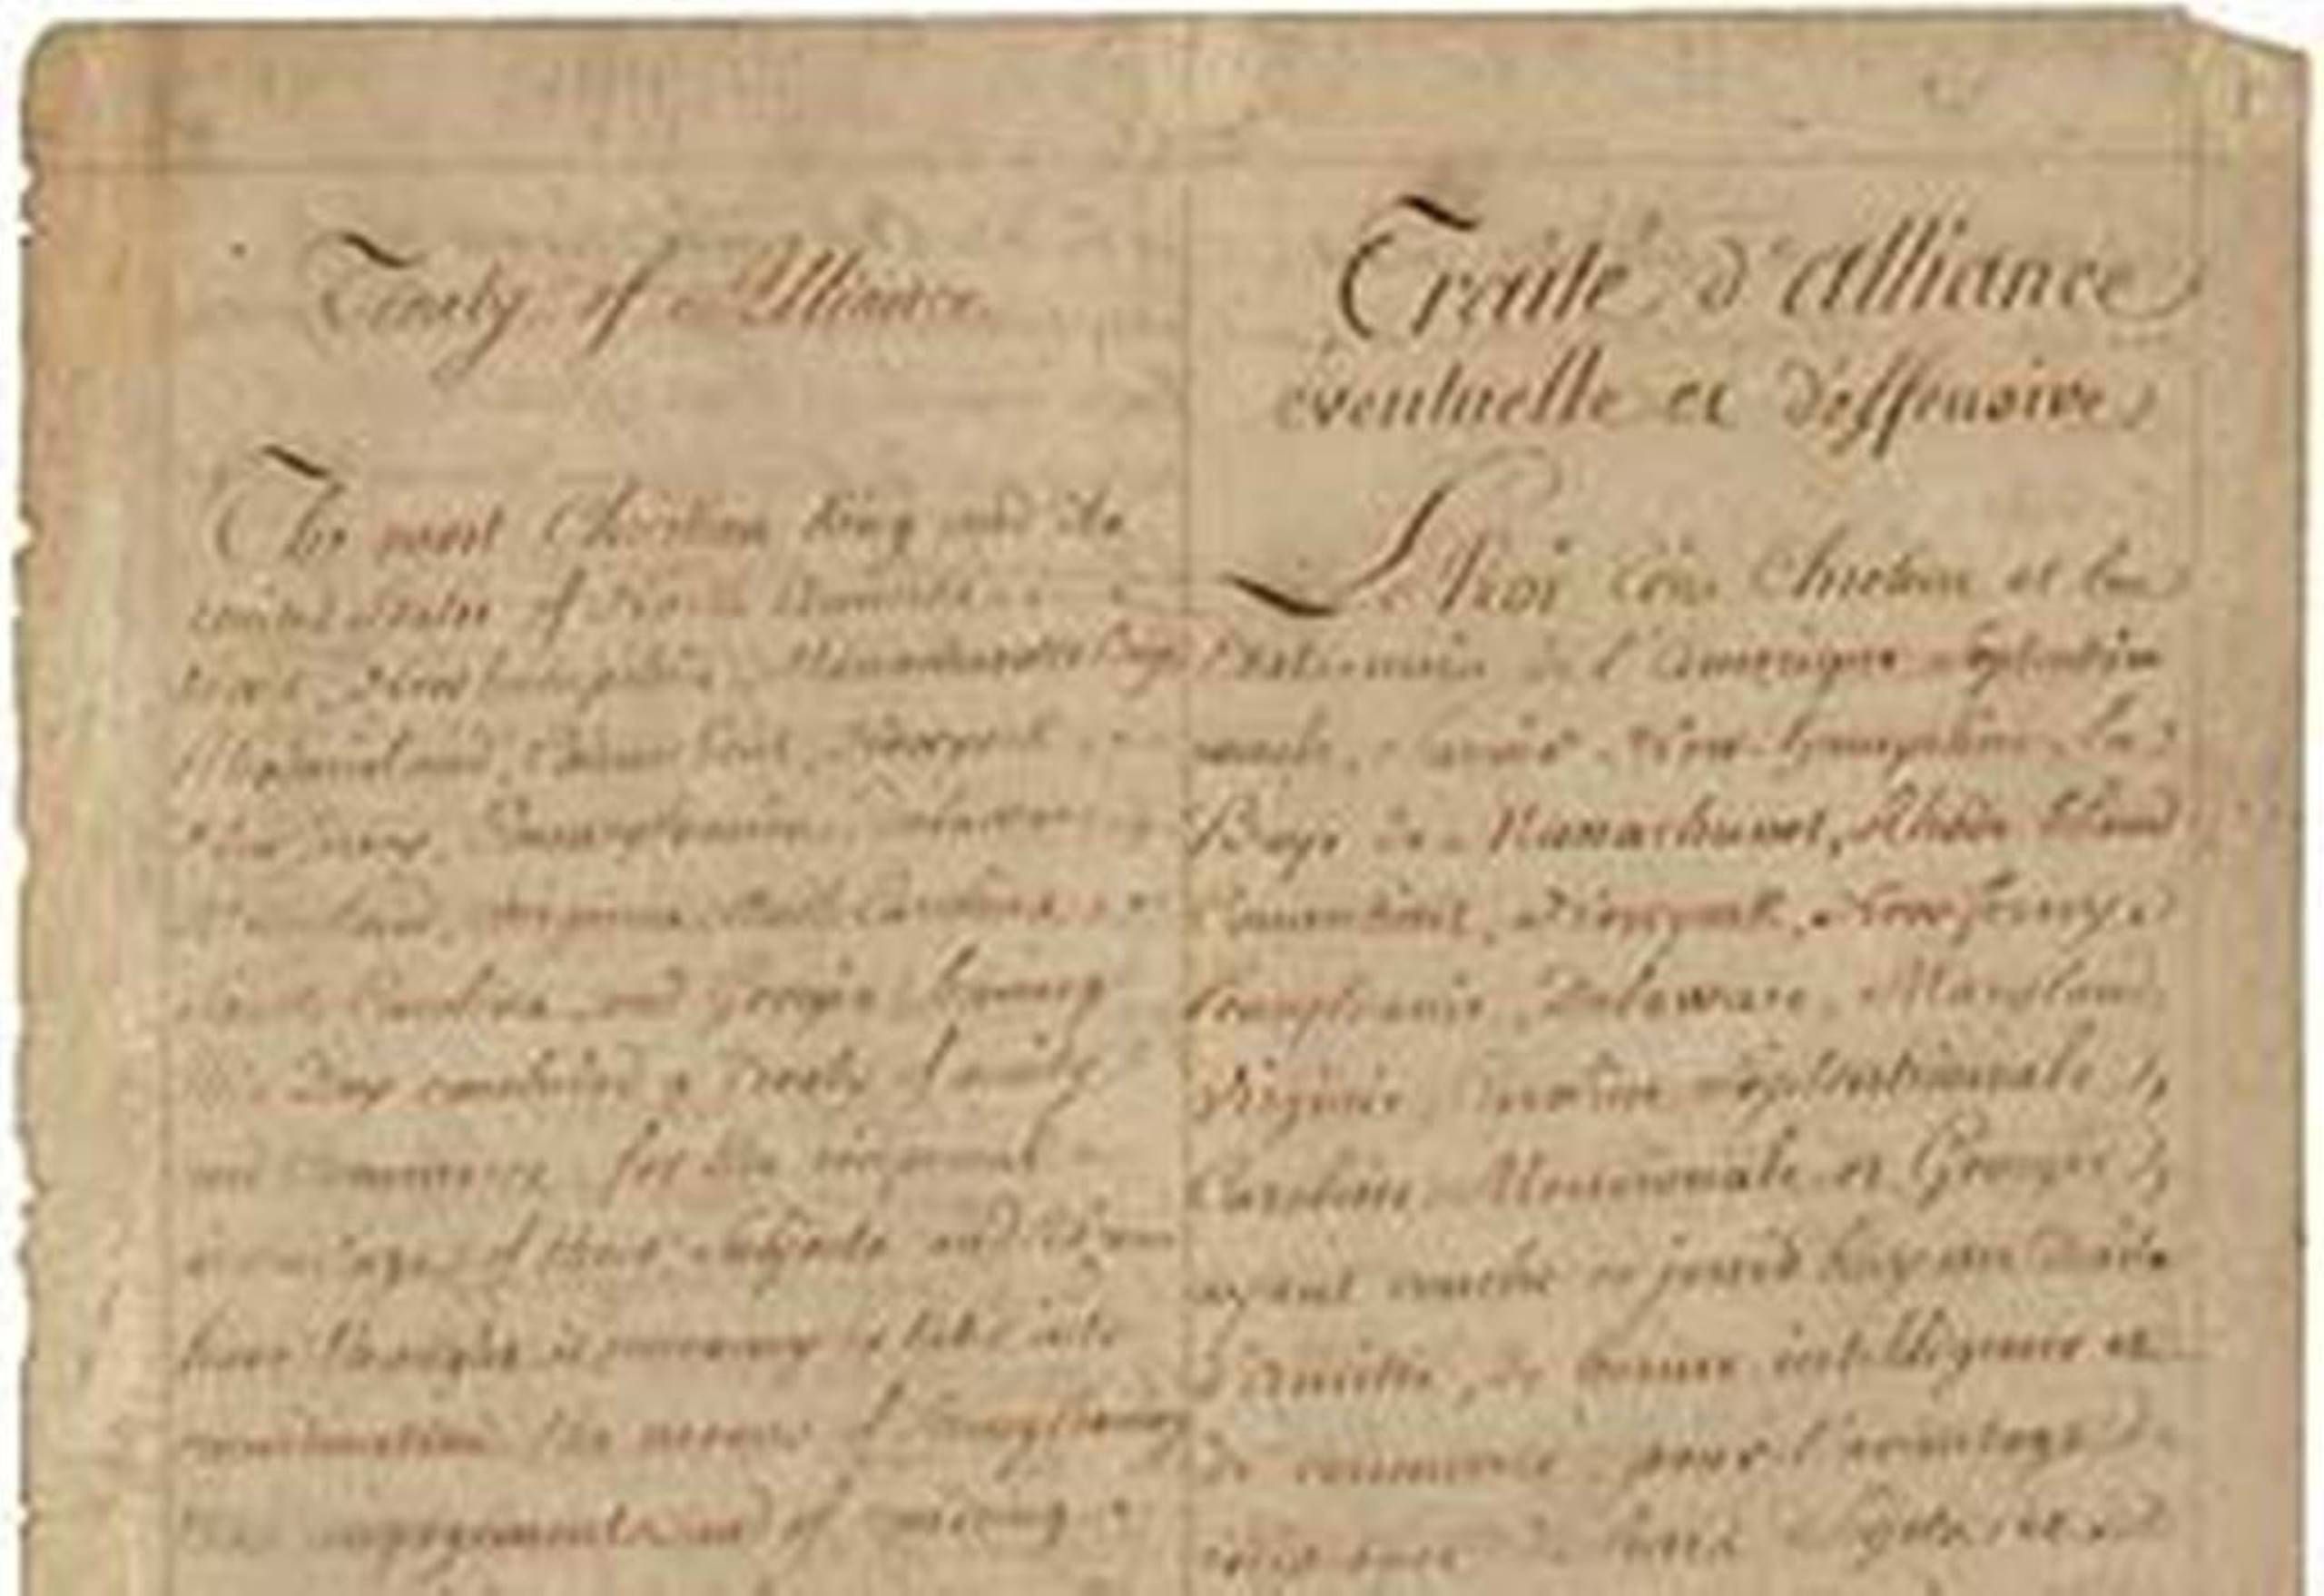 Treaty of Alliance
The most Christian King and the
united States of North America
New hampshire, Massachusetts Bay
Connecticut, Newyork
New Jersey, Pennsylvania, Delaware
Maryland, Virginia, North Carolina
South Carolina and Georgia having
this Day concluded a Treaty of amity
and Commerce, for the reciprocal
advantage of their Subjects and
have thought it necessary to take into
consideration the means of strengthening
engagements and of
Traité d'alliance
éventuelle et déffensive
Le Roi très Chrétien et les
Etats-unis de l'amérique septentrio
nale, New hampshire, la
Baye de Massachusset, Rhode island
Connecticut, Newyork, New Jersey
Pensylvanie, Delaware, Maryland,
Virginie, Caroline septentrionale
Caroline Meridionale et Georgie
ayant conclu ce jourd'huy un traité
d'amitié, de bonne intelligence et
de commerce, pour l'avantage
de leurs Sujets